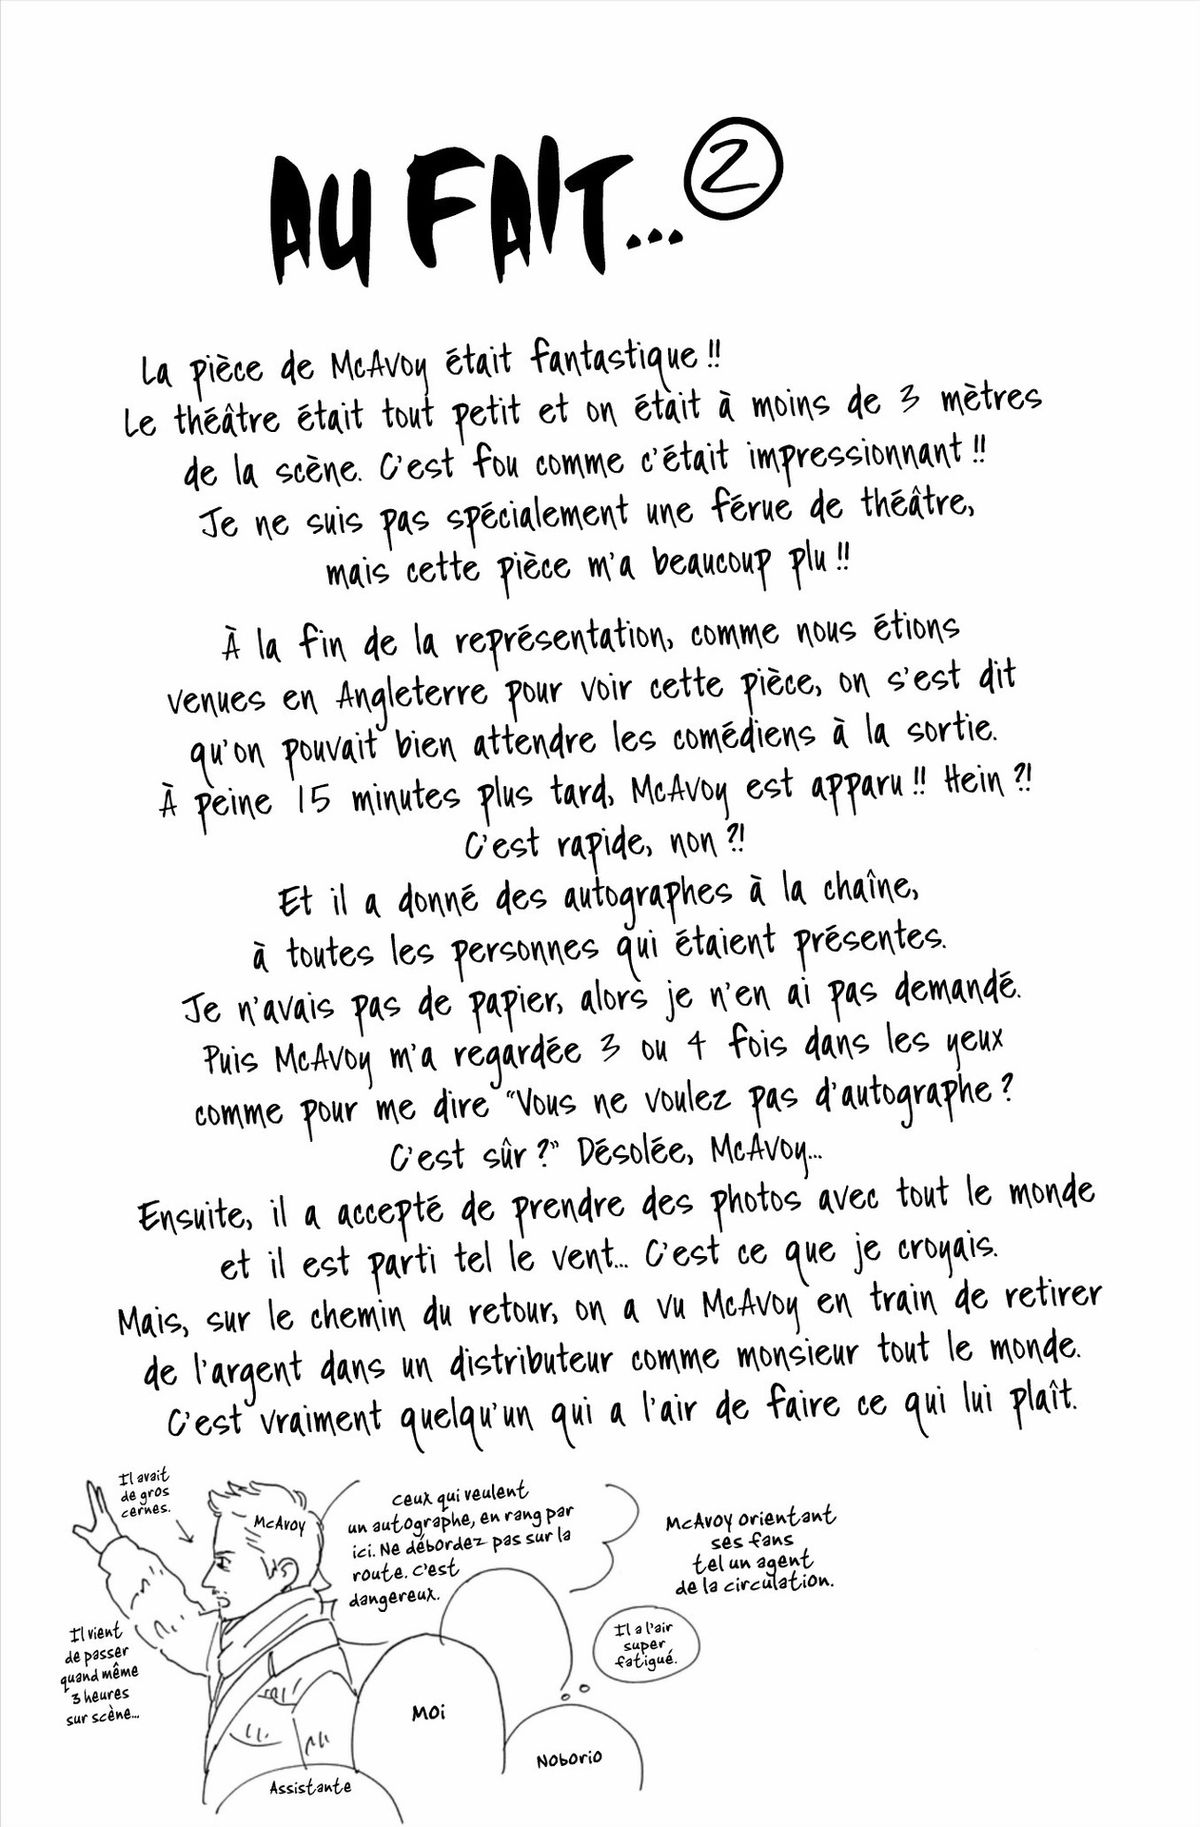 AU FAIT... ②
La pièce de McAvoy était fantastique !!
Le théâtre était tout petit et on était à moins de 3 mètres
de la scène. C'est fou comme c'était impressionnant !!
Je ne suis pas spécialement une férue de théâtre,
mais cette pièce m'a beaucoup plu !!
À la fin de la représentation, comme nous étions
venues en Angleterre pour voir cette pièce, on s'est dit
qu'on pouvait bien attendre les comédiens à la sortie.
À peine 15 minutes plus tard, McAvoy est apparu !! Hein ?!
C'est rapide, non ?!
Et il a donné des autographes à la chaîne,
à toutes les personnes qui étaient présentes.
Je n'avais pas de papier, alors je n'en ai pas demandé.
Puis McAvoy m'a regardée 3 ou 4 fois dans les yeux
comme pour me dire "Vous ne voulez pas d'autographe ?
C'est sûr ?" Désolée, McAvoy...
Ensuite, il a accepté de prendre des photos avec tout le monde
et il est parti tel le vent... C'est ce que je croyais.
Mais, sur le chemin du retour, on a vu McAvoy en train de retirer
de l'argent dans un distributeur comme monsieur tout le monde.
C'est vraiment quelqu'un qui a l'air de faire ce qui lui plaît.
Il avait
de gros
cernes.
McAvoy
Ceux qui veulent
un autographe, en rang par
ici. Ne débordez pas sur la
route. C'est
dangereux.
McAvoy orientant
ses fans
tel un agent
de la circulation.
Il vient
de passer
quand même
3 heures
sur scène...
Il a l'air
super
fatigué.
Moi
Noborio
Assistante